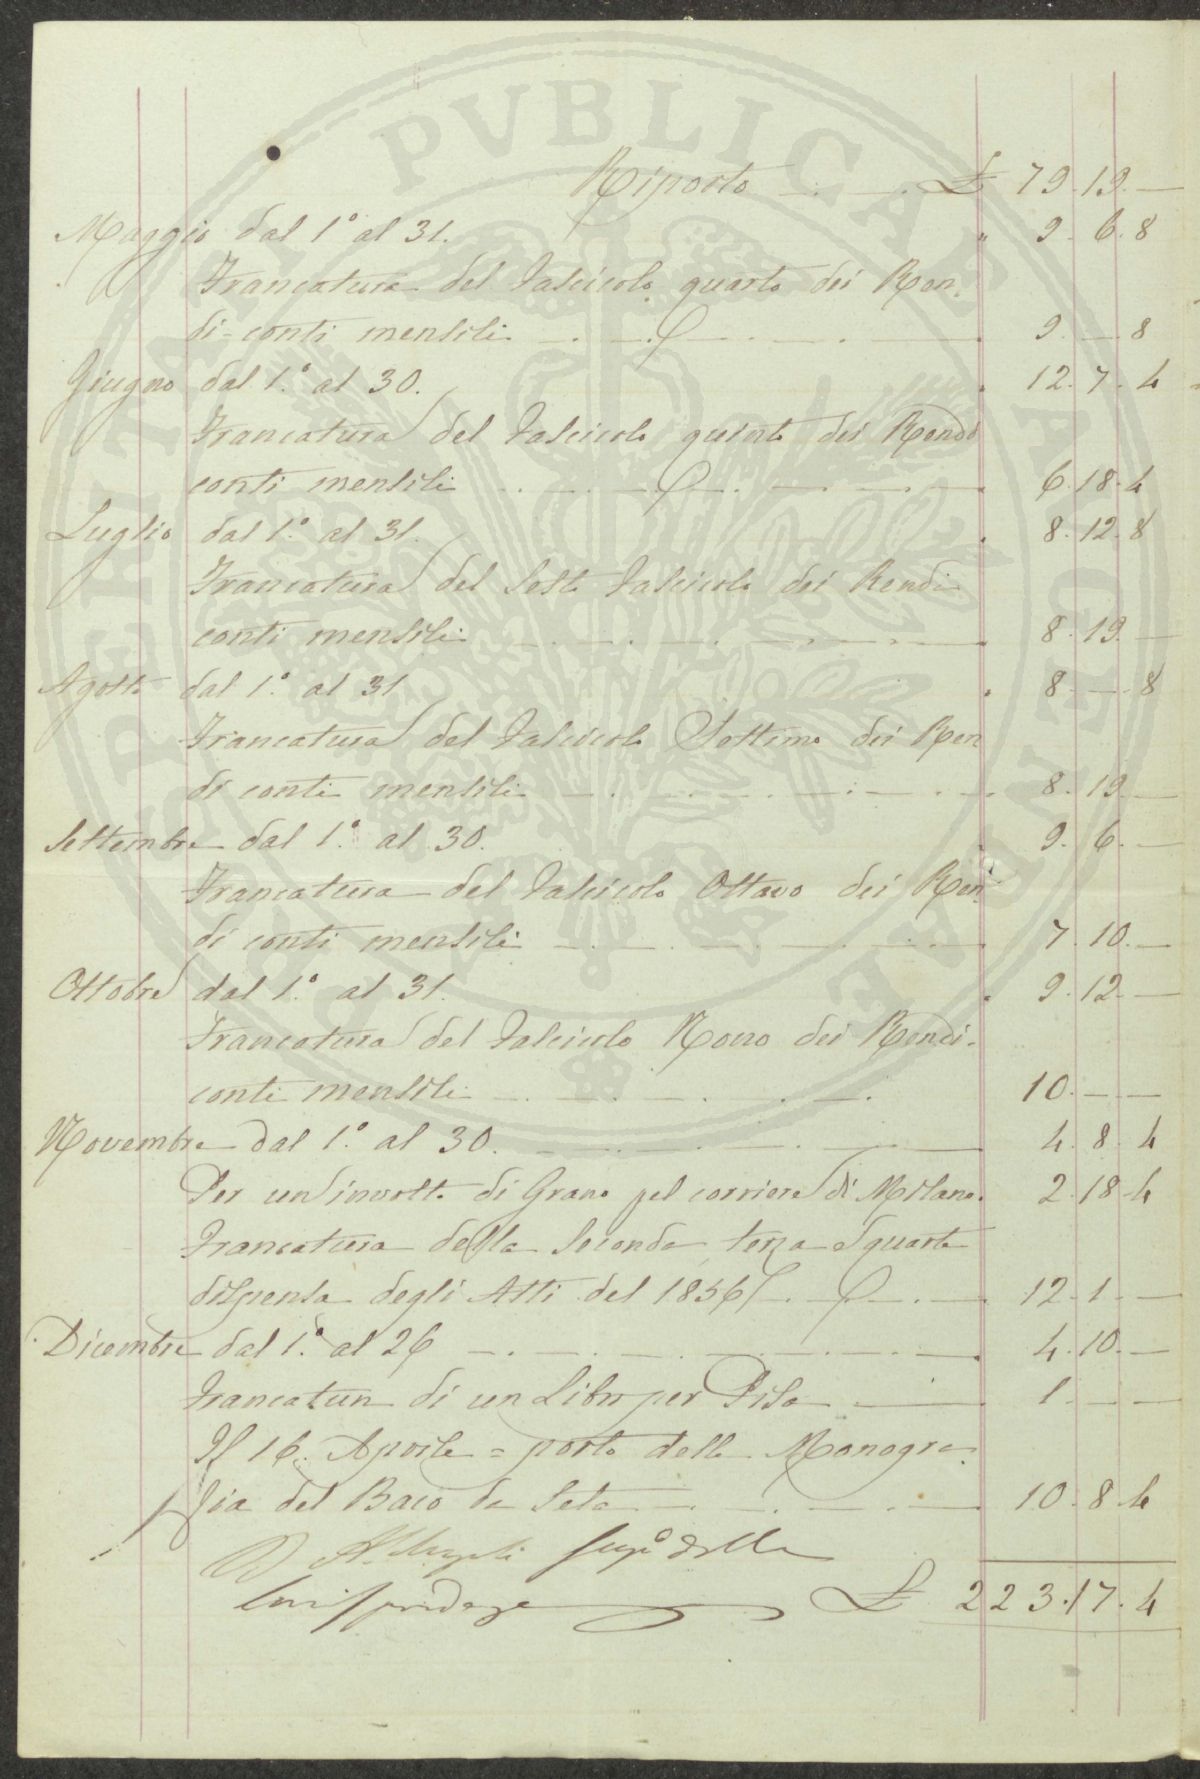 PROSPERITATI PVBLICAE AVGENDAE
Riporto £ 79. 19. —
Maggio dal 1.° al 31. " 9. 6. 8
Francatura del Fascicolo quarto dei Ren-
di-conti mensili 9. — 8
Giugno dal 1.° al 30. " 12. 7. 4
Francatura del Fascicolo quinto dei Rendi
conti mensili 6. 18. 4
Luglio dal 1.° al 31. " 8. 12. 8
Francatura del Sesto Fascicolo dei Rendi
conti mensili 8. 19. —
Agosto dal 1.° al 31 " 8. — 8
Francatura del Fascicolo Settimo dei Ren
di conti mensili 8. 19. —
Settembre dal 1.° al 30. " 9. 6. —
Francatura del Fascicolo Ottavo dei Ren-
di conti mensili 7. 10. —
Ottobre dal 1.° al 31. " 9. 12. —
Francatura del Fascicolo Nono dei Rendi-
conti mensili 10. — —
Novembre dal 1.° al 30. 4. 8. 4
Per un involto di Grano pel corriere di Milano. 2. 18. 4
Francatura della Seconda, terza e quarta
dispensa degli Atti del 1856 12. 1. —
Dicembre dal 1.° al 26 4. 10. —
Francatura di un Libro per Pisa 1. — —
Il 16. Aprile = porto della Monogra-
fia del Baco da Seta 10. 8. 4
della
£ 223. 17. 4